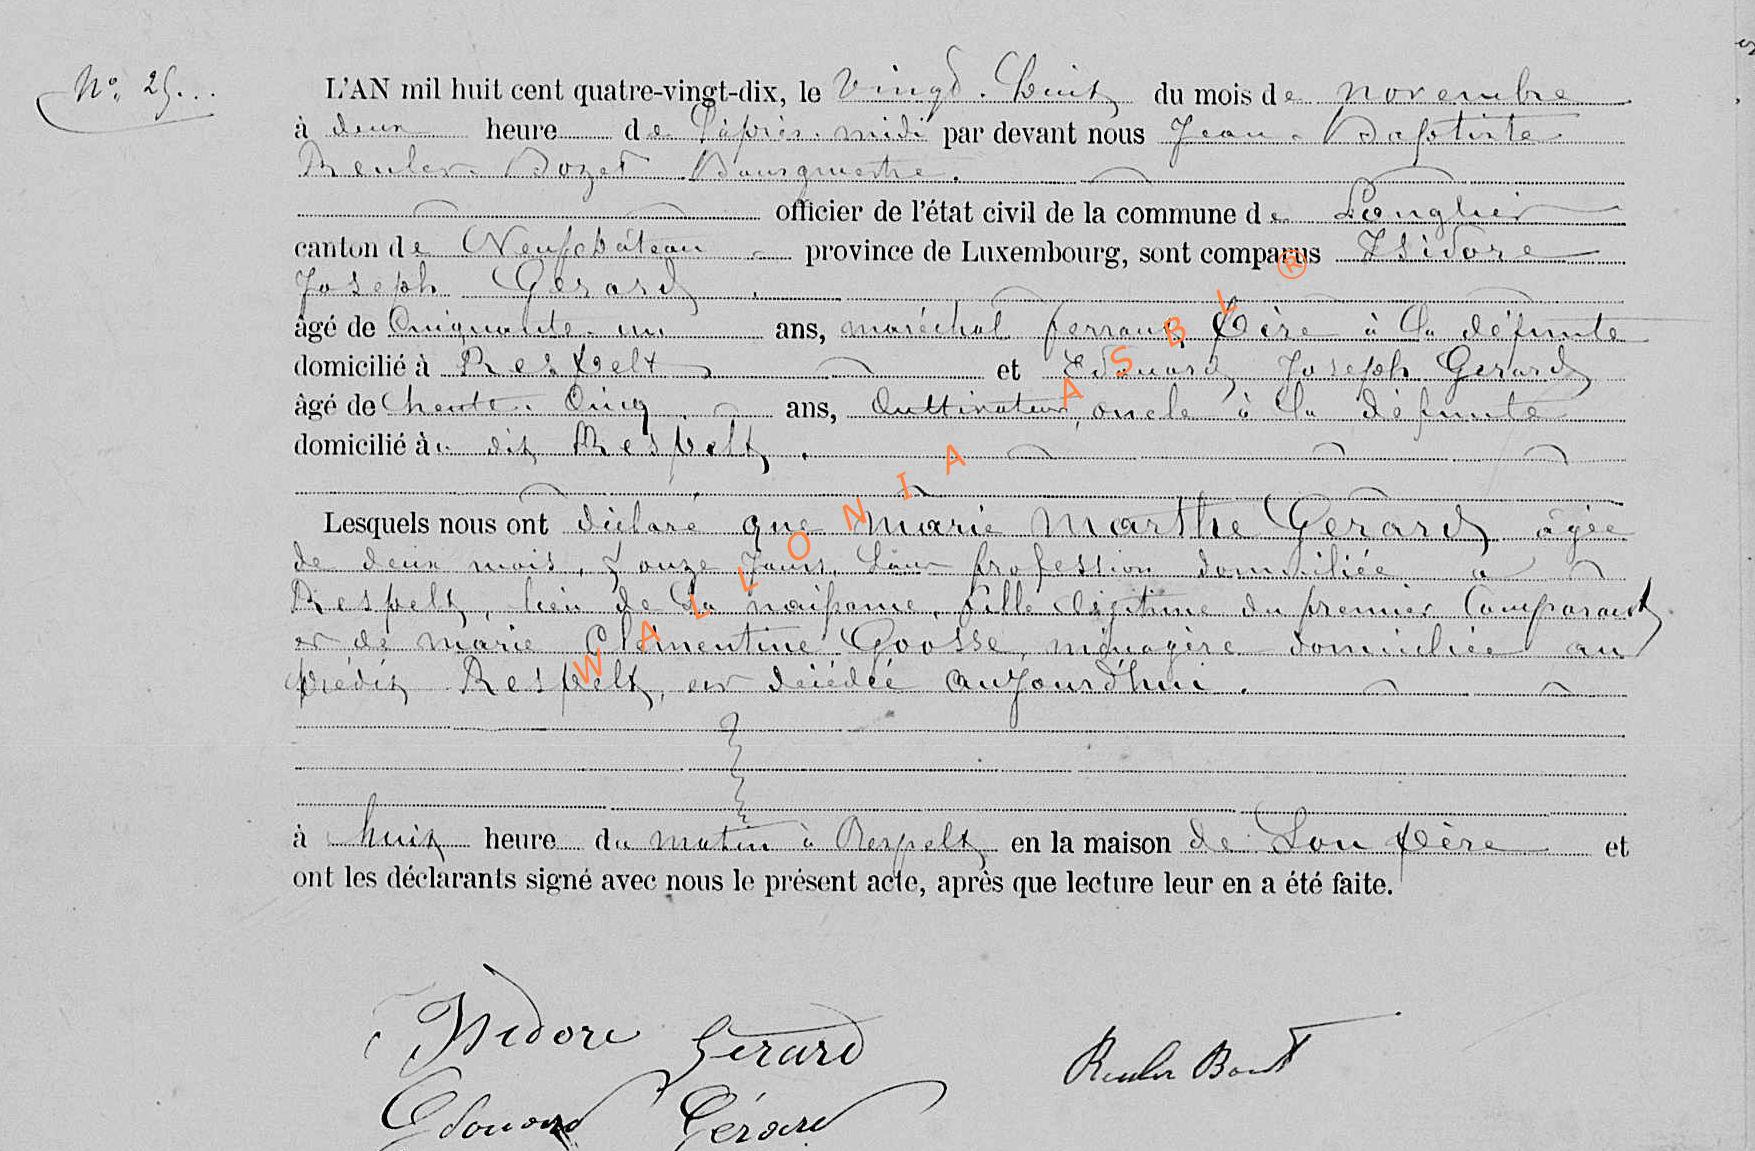 N° 25...
L'AN mil huit cent quatre-vingt-dix, le Vingt-huit du mois de novembre
à deux heure de l'après-midi par devant nous Jean-Baptiste
Reuler Bourgmestre.
officier de l'état civil de la commune de Longlier
canton de Neufchâteau province de Luxembourg, sont comparus Isidore
Joseph Gerard
âgé de Cinquante-un ans, maréchal ferrant, Père à la défunte
domicilié à Respelt et Edouard Joseph Gerard
âgé de trente-Cinq ans, Cultivateur, oncle à la défunte
domicilié au dit Respelt.
Lesquels nous ont déclaré que Marie Marthe Gerard âgée
de deux mois & onze Jours, Sans profession domiciliée à
Respelt, lieu de Sa naissance, fille légitime du premier Comparant
et de Marie Clémentine Goosse, ménagère domiciliée au
prédit Respelt, est décédée aujourd'hui.
à huit heure du matin à Respelt en la maison de Son Père et
ont les déclarants signé avec nous le présent acte, après que lecture leur en a été faite.
Isidore Gerard
Reuler
Edouard Gérard
WALLONIA ASBL ®